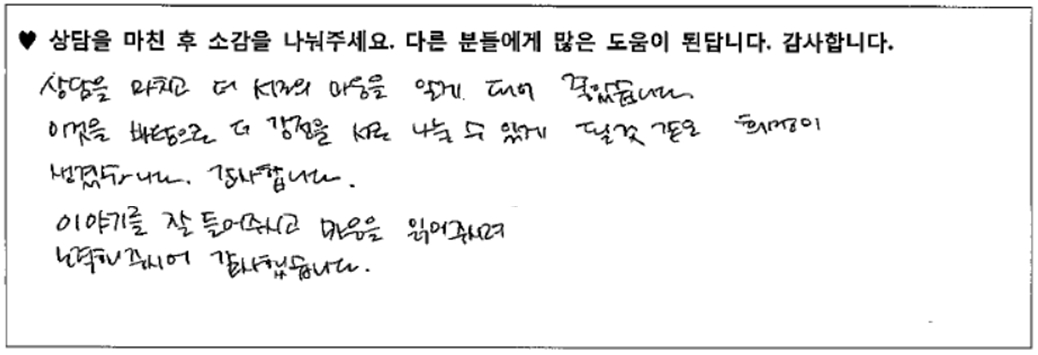 ♥ 상담을 마친 후 소감을 나눠주세요. 다른 분들에게 많은 도움이 된답니다. 감사합니다.
상담을 마치고 더 서로의 마음을 알게 되어 좋았습니다.
이것을 바탕으로 더 감정을 서로 나눌 수 있게 될것 같은 희망이
생겼습니다. 감사합니다.
이야기를 잘 들어주시고 마음을 읽어주시려
노력해주시어 감사했습니다.